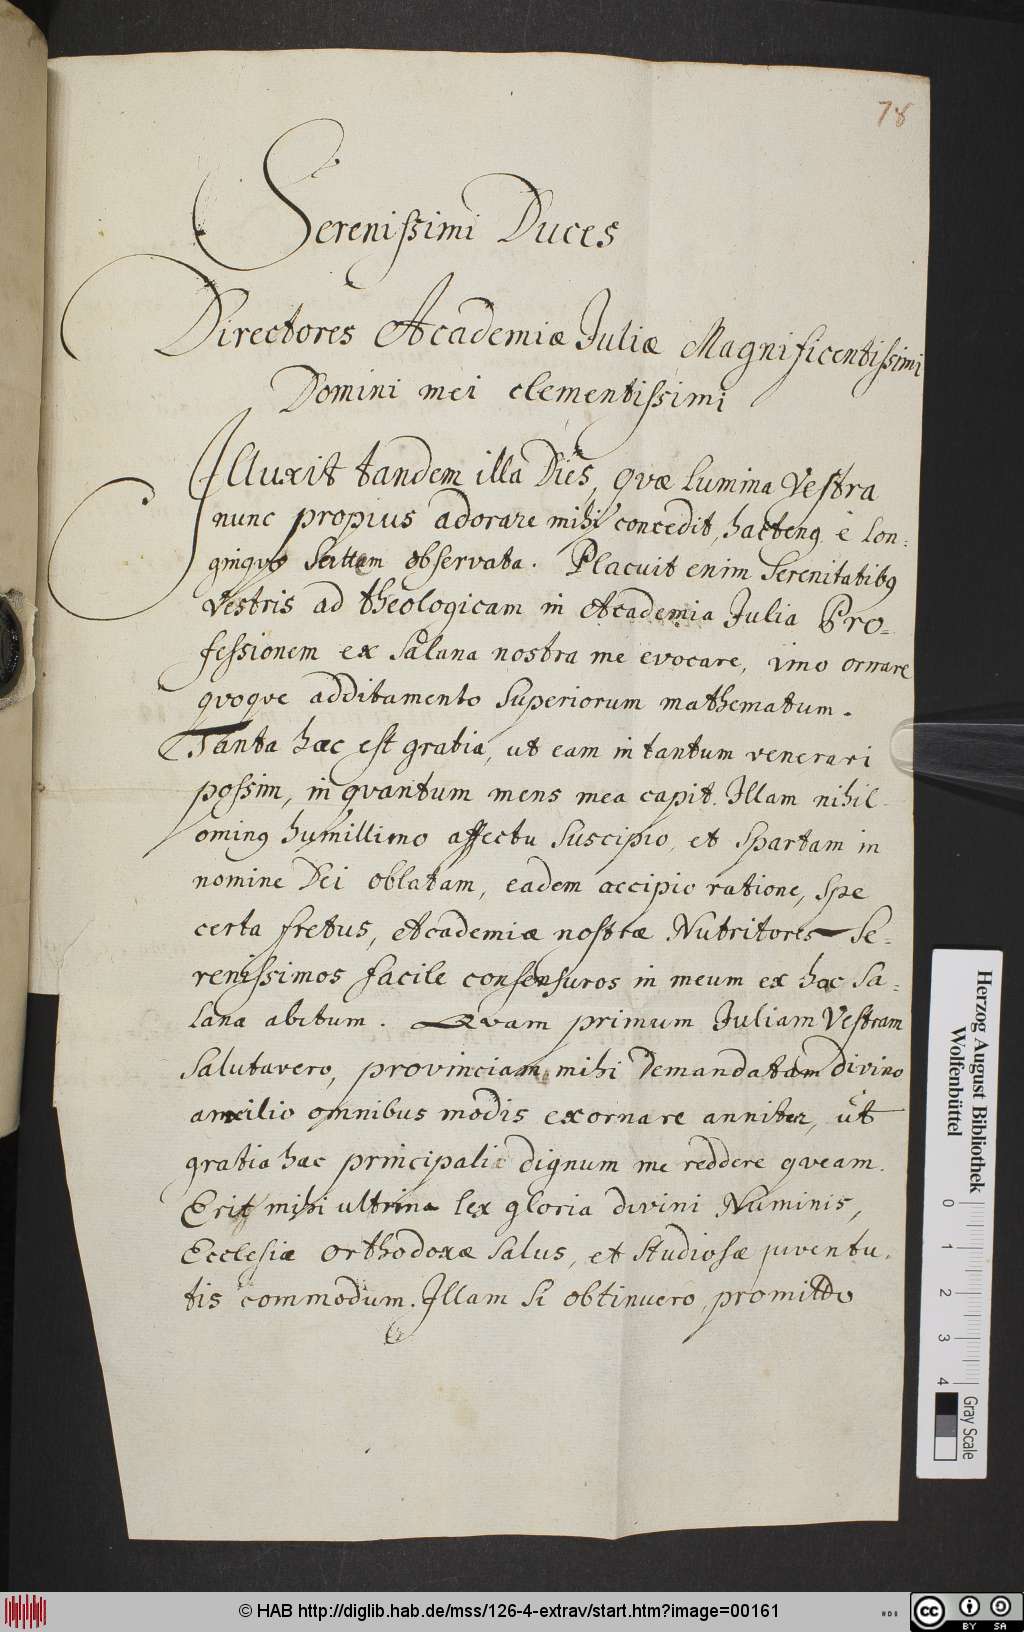 78
Serenissimi Duces
Directores Academiæ Juliæ Magnificentissimi
Domini mei clementissimi
Illuxit tandem illa Dies, qvæ lumina Vestra
nunc propius adorare mihi concedit, hacteng è lon:
ginqvo observata. Placuit enim Serenitatibg
Vestris ad theologicam in Academia Julia Pro=
fessionem ex Salana nostra me evocare, imo ornare
qvoqve additamento Superiorum mathematum.
Tanta hæc est gratia, ut eam in tantum venerari
possim, in qvantum mens mea capit. Illam nihil-
oming humillimo affectu suscipio, et Spartam in
nomine Dei oblatam, eadem accipio ratione, spe
certa fretus, Academiæ nostræ Nutritores Se=
renissimos facile consensuros in meum ex hac Sa=
lana abitum. Qvam primum Juliam Vestram
Salutavero, provinciam mihi demandatam divino
auxilio omnibus modis exornare annitar, ut
gratia hac principali dignum me reddere qveam.
Erit mihi lex gloria divini Numinis,
Ecclesiæ orthodoxæ salus, et studiosæ juventu-
tis commodum. Illam si obtinuero, promitto
Herzog August Bibliothek
Wolfenbüttel
0 1 2 3 4
Gray Scale
© HAB http://diglib.hab.de/mss/126-4-extrav/start.htm?image=00161
cc BY SA